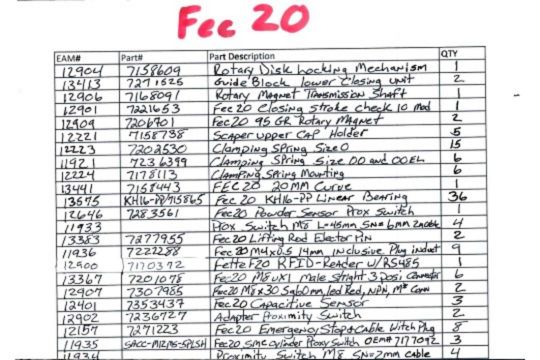 Fec 20
EAM# Part# Part Description QTY
12904 7158609 Rotary Disk Locking Mechanism 1
13413 7271525 Guide Block lower Closing unit 2
12906 7168091 Rotary Magnet Transmission Shaft 1
12901 7221653 Fec 20 Closing stroke check 10 mod 1
12909 7206901 Fec 20 95 GR Rotary Magnet 2
12221 7158738 Scaper upper CAP Holder 5
12223 7202530 Clamping Spring Size 0 15
11921 7236399 Clamping Spring Size 00 and 00EL 6
12224 7178113 Clamping Spring Mounting 6
13441 7158443 FEC 20 20MM Curve 1
13575 KH16-PP/715865 Fec 20 KH16-PP Linear Bearing 36
12646 7283561 Fec 20 Powder Sensor Prox Switch 1
11933 Prox Switch M8 L=45mm SN=6mm 2m cable 4
13383 7277955 Fec 20 Lifting Rod Ejector Pin 2
11936 7222288 Fec 20 M4x0.5 14mm Inclusive Plug induct 9
12900 7170372 Fette F20 RFID-Reader W/RS485 1
13367 7201078 Fec 20 M8x1 Male Stright 3 Posi Connector 6
12907 7307985 Fec 20 M8x30 Sq60mm, led Red, NPN, M8 Conn 2
12401 7353437 Fec 20 Capacitive Sensor 3
12902 7236727 Adapter Proximity Switch 2
12157 7271223 Fec 20 Emergency Stop+Cable Witch Plug 8
11935 SACC-M12MS-5PLSH Fec 20, SMC Cylinder Proxy Switch OEM# 7177092 3
11934 Proximity Switch M8 SN=2mm cable 4